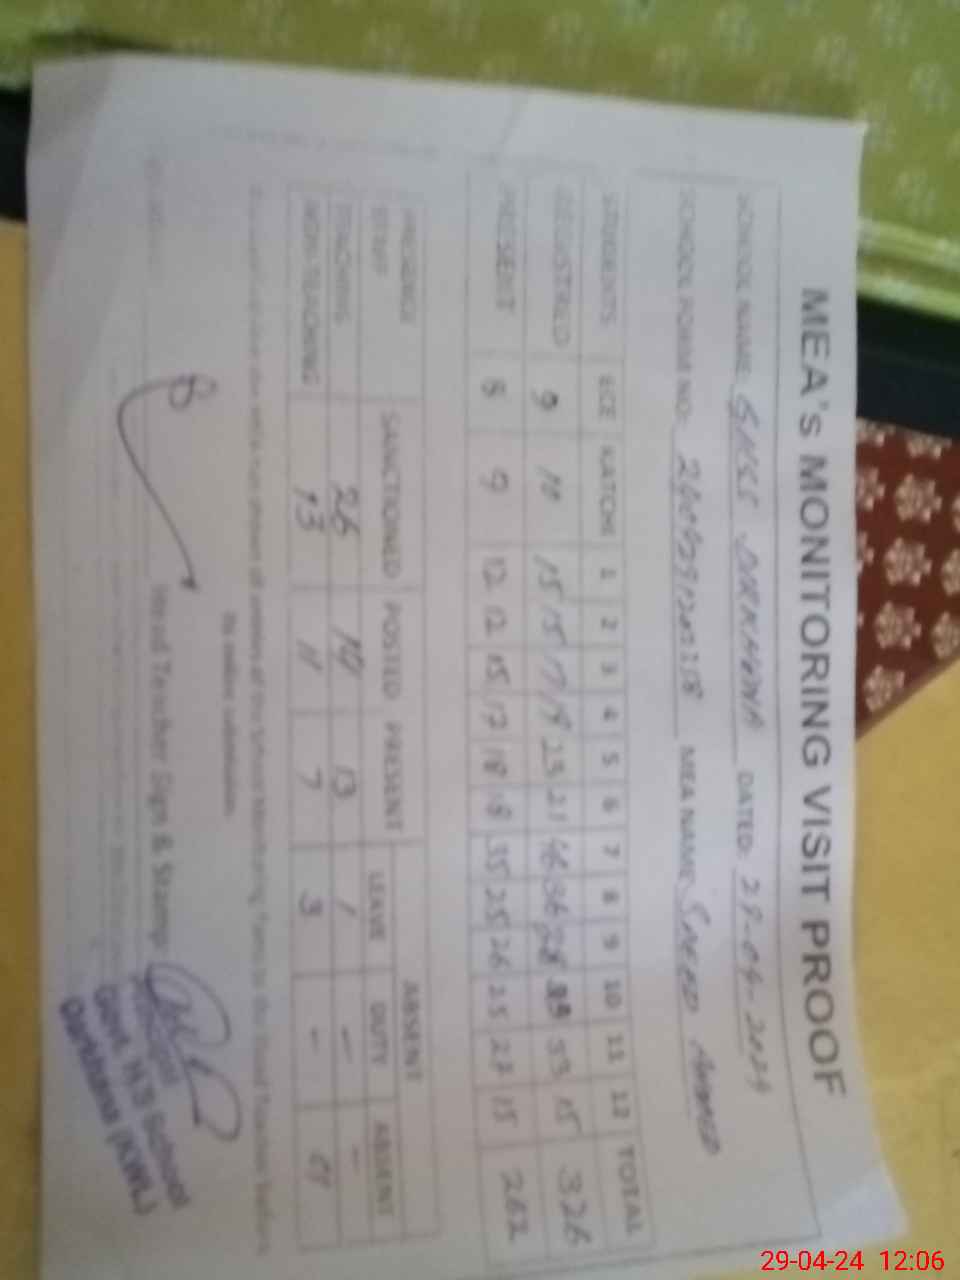 MEA's MONITORING VISIT PROOF
SCHOOL NAME: GHSS DARKHANA DATED: 29-04-2024
SCHOOL FORM NO: MEA NAME: SAEED AHMED
STUDENTS ECE KATCHI 1 2 3 4 5 6 7 8 9 10 11 12 TOTAL
REGISTERED 9 10 15 15 17 19 23 21 46 36 38 33 15 326
PRESENT 8 9 12 12 15 17 18 18 35 25 26 25 27 15 262
PRESENCE STAFF SANCTIONED POSTED PRESENT ABSENT
LEAVE DUTY ABSENT
TEACHING 26 14 13 1 - -
NON-TEACHING 13 11 7 3 - 01
its online submission.
Head Teacher Sign & Stamp:
Principal
Govt. H.S School
Darkhana (KWL)
29-04-24 12:06